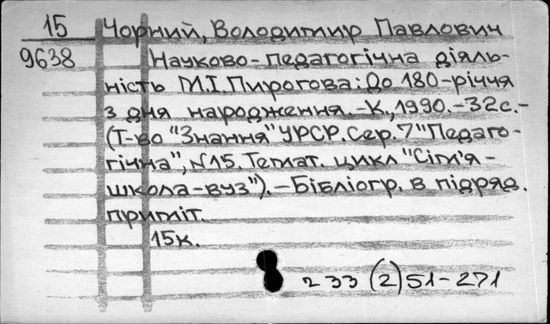 15 Чорний, Володимир Павлович
9638 Науково-педагогічна діяль-
ність М.І.Пирогова: До 180-річчя
з дня народження.-К,1990.-32с.-
(Т-во "Знання" УРСР. Сер.7 "Педаго-
гічна", N15. Темат. цикл "Сім'я-
школа-вуз").-Бібліогр. в підряд.
приміт.
15к.
2 33 (2) 51-271